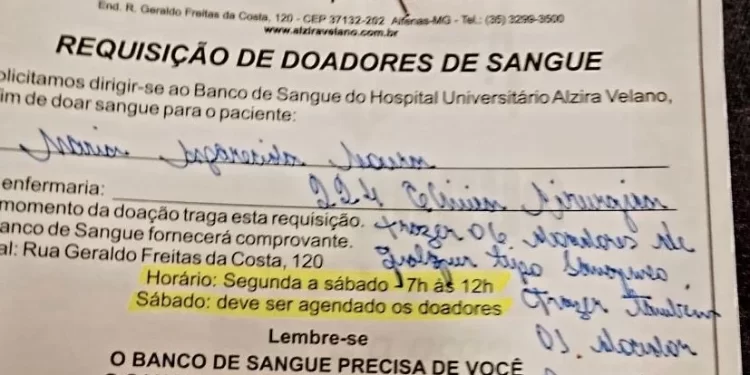 End. R. Geraldo Freitas da Costa, 120 - CEP 37132-202 Alfenas-MG - Tel.: (35) 3299-3500
www.alziravelano.com.br
REQUISIÇÃO DE DOADORES DE SANGUE
olicitamos dirigir-se ao Banco de Sangue do Hospital Universitário Alzira Velano,
im de doar sangue para o paciente:
Maria Aparecida Moura
enfermaria: 224 Clinica Cirurgica
momento da doação traga esta requisição.
anco de Sangue fornecerá comprovante.
al: Rua Geraldo Freitas da Costa, 120
Trazer 06 doadores de
qualquer tipo sanguineo.
Trazer também
01 doador
Horário: Segunda a sábado - 7h às 12h
Sábado: deve ser agendado os doadores
Lembre-se
O BANCO DE SANGUE PRECISA DE VOCÊ